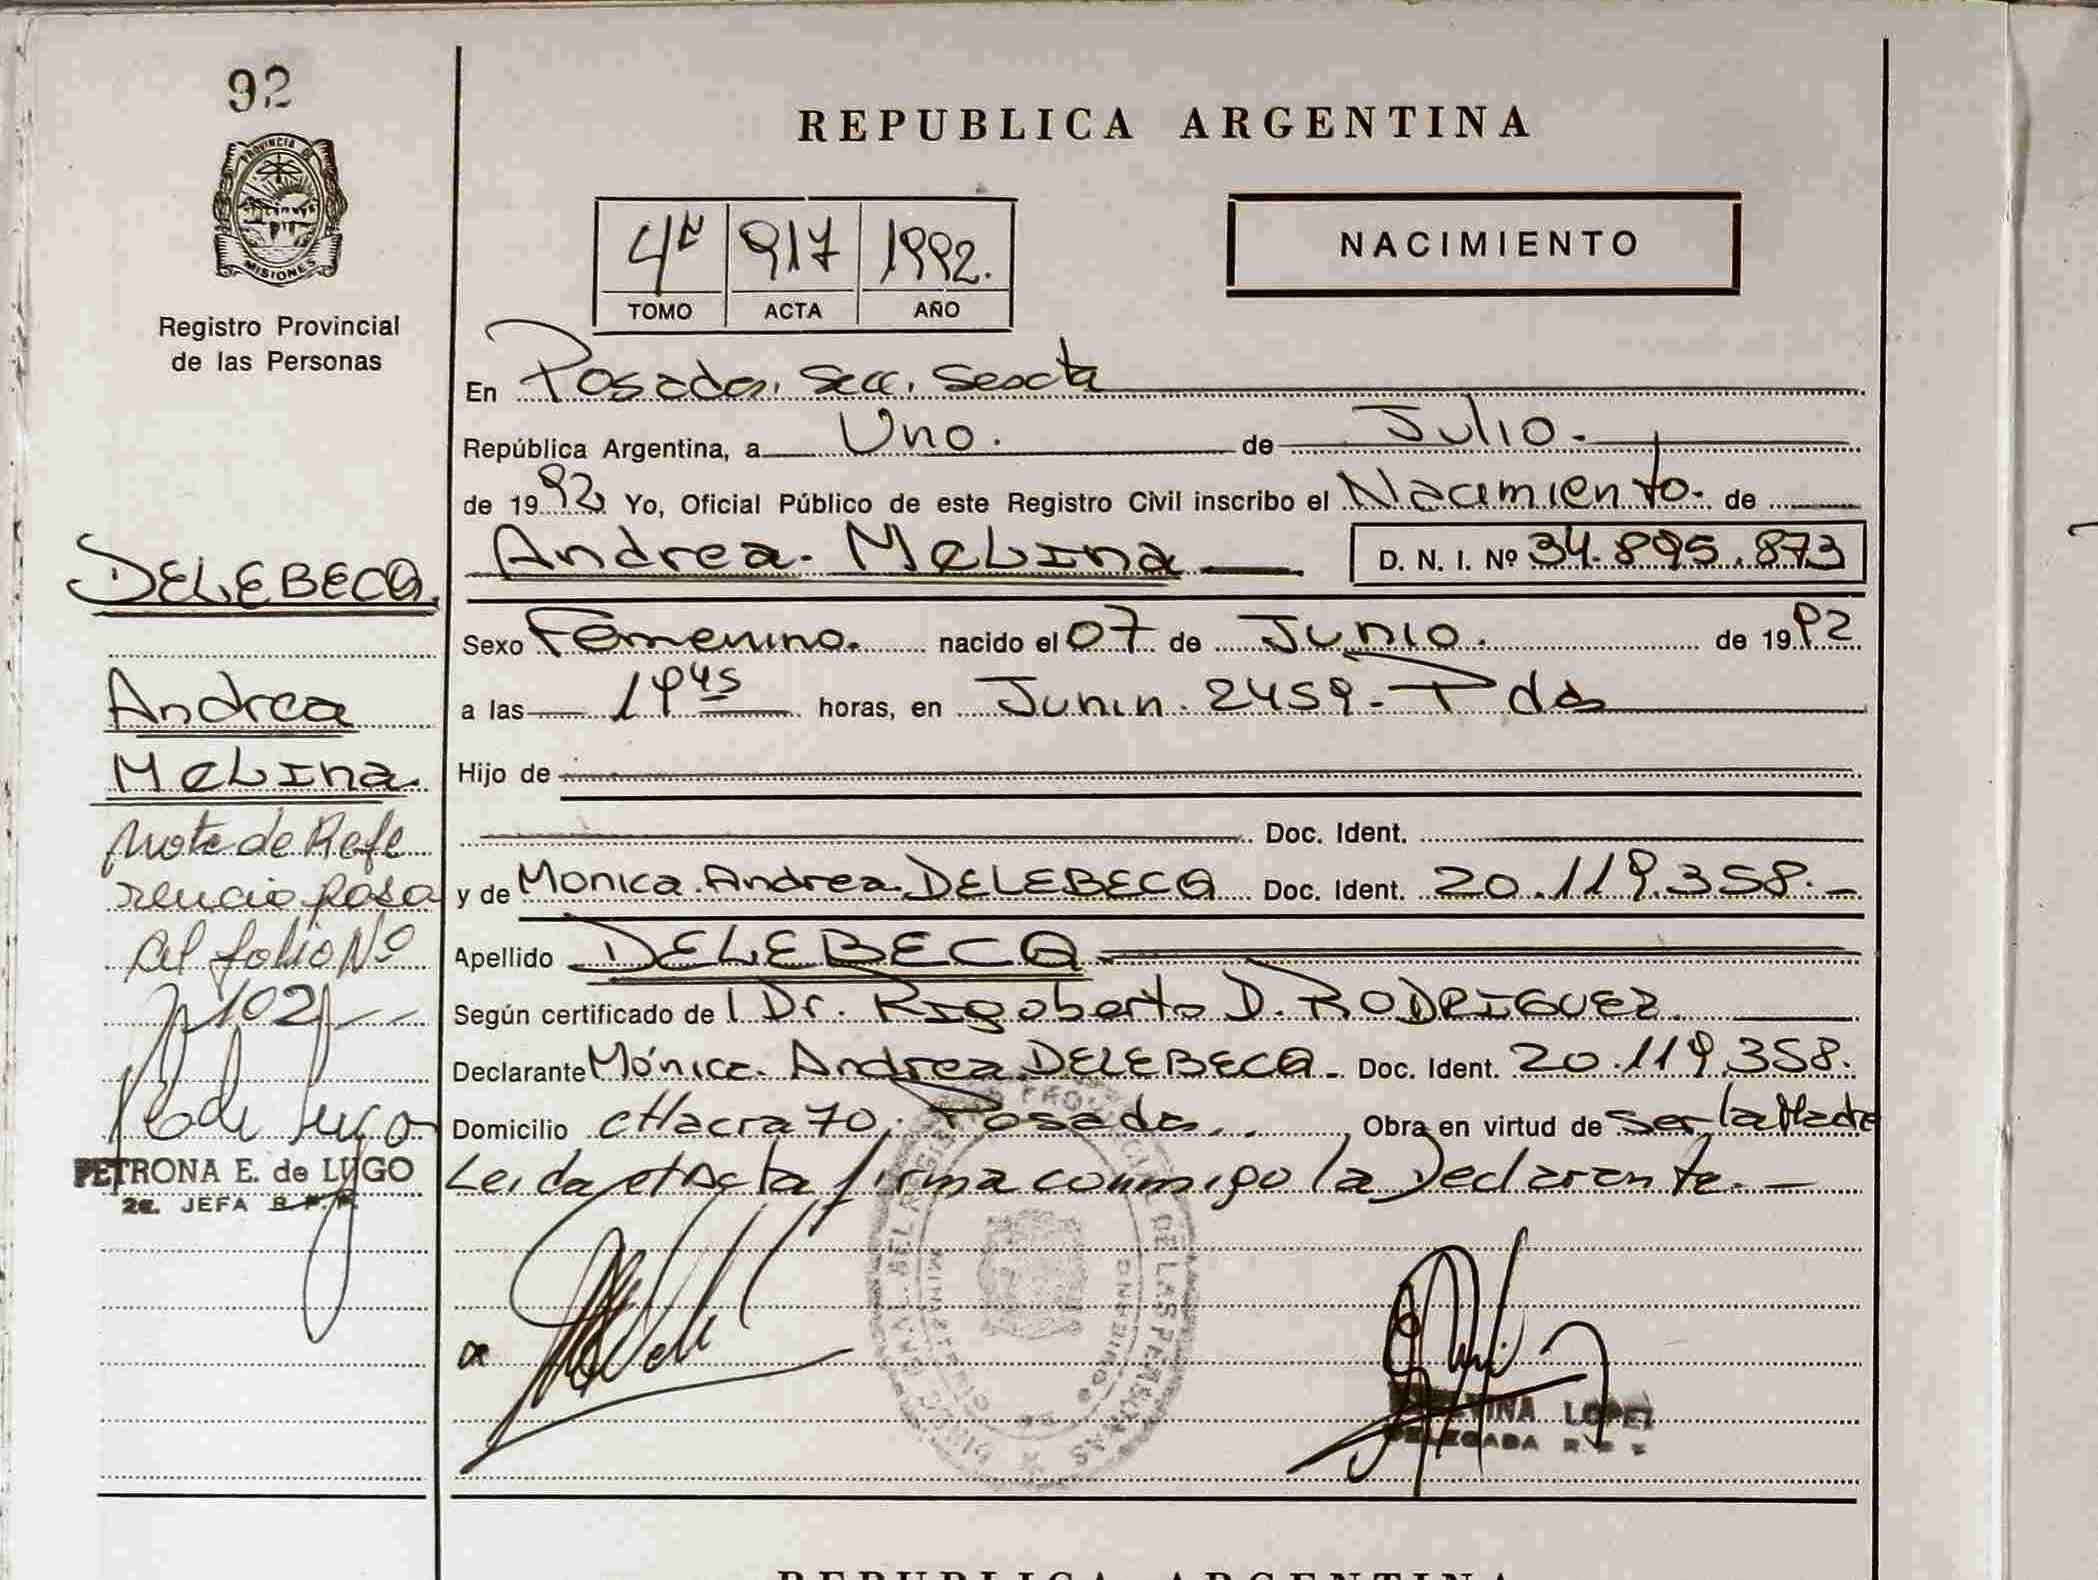 92
PROVINCIA DE
MISIONES
Registro Provincial
de las Personas
DELEBECQ.
Andrea
Melina.
Nota de Refe
rencia pasa
al folio Nº
102
PETRONA E. de LUGO
2a. JEFA R.P.P.
REPUBLICA ARGENTINA
4º 917 1992.
TOMO ACTA AÑO
NACIMIENTO
En Posadas. Secc. Sexta
República Argentina, a Uno. de Julio.
de 1992 Yo, Oficial Público de este Registro Civil inscribo el Nacimiento. de
Andrea. Melina D. N. I. Nº 34.895.873
Sexo Femenino. nacido el 07 de Junio. de 1992
a las 19 45 horas, en Junin. 2459. Pdas
Hijo de
Doc. Ident.
y de Monica. Andrea. DELEBECQ Doc. Ident. 20.119.358.-
Apellido DELEBECQ
Según certificado de l Dr. Rigoberto D. RODRIGUEZ.
Declarante Mónica. Andrea. DELEBECQ. Doc. Ident. 20.119.358.
Domicilio cHacra 70. Posadas. Obra en virtud de ser la Madre
Leida el Acta firma conmigo la Declarante.-
LOPEZ
DELEGADA R.P.P.
REPUBLICA ARGENTINA